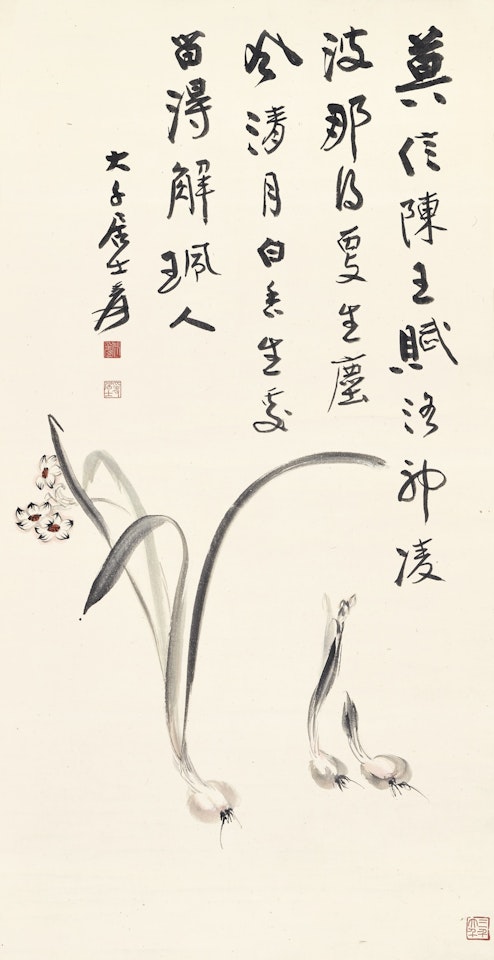 莫信陳王賦洛神凌
波那得更生塵
風清月白香生處
留得解珮人
大千居士爰